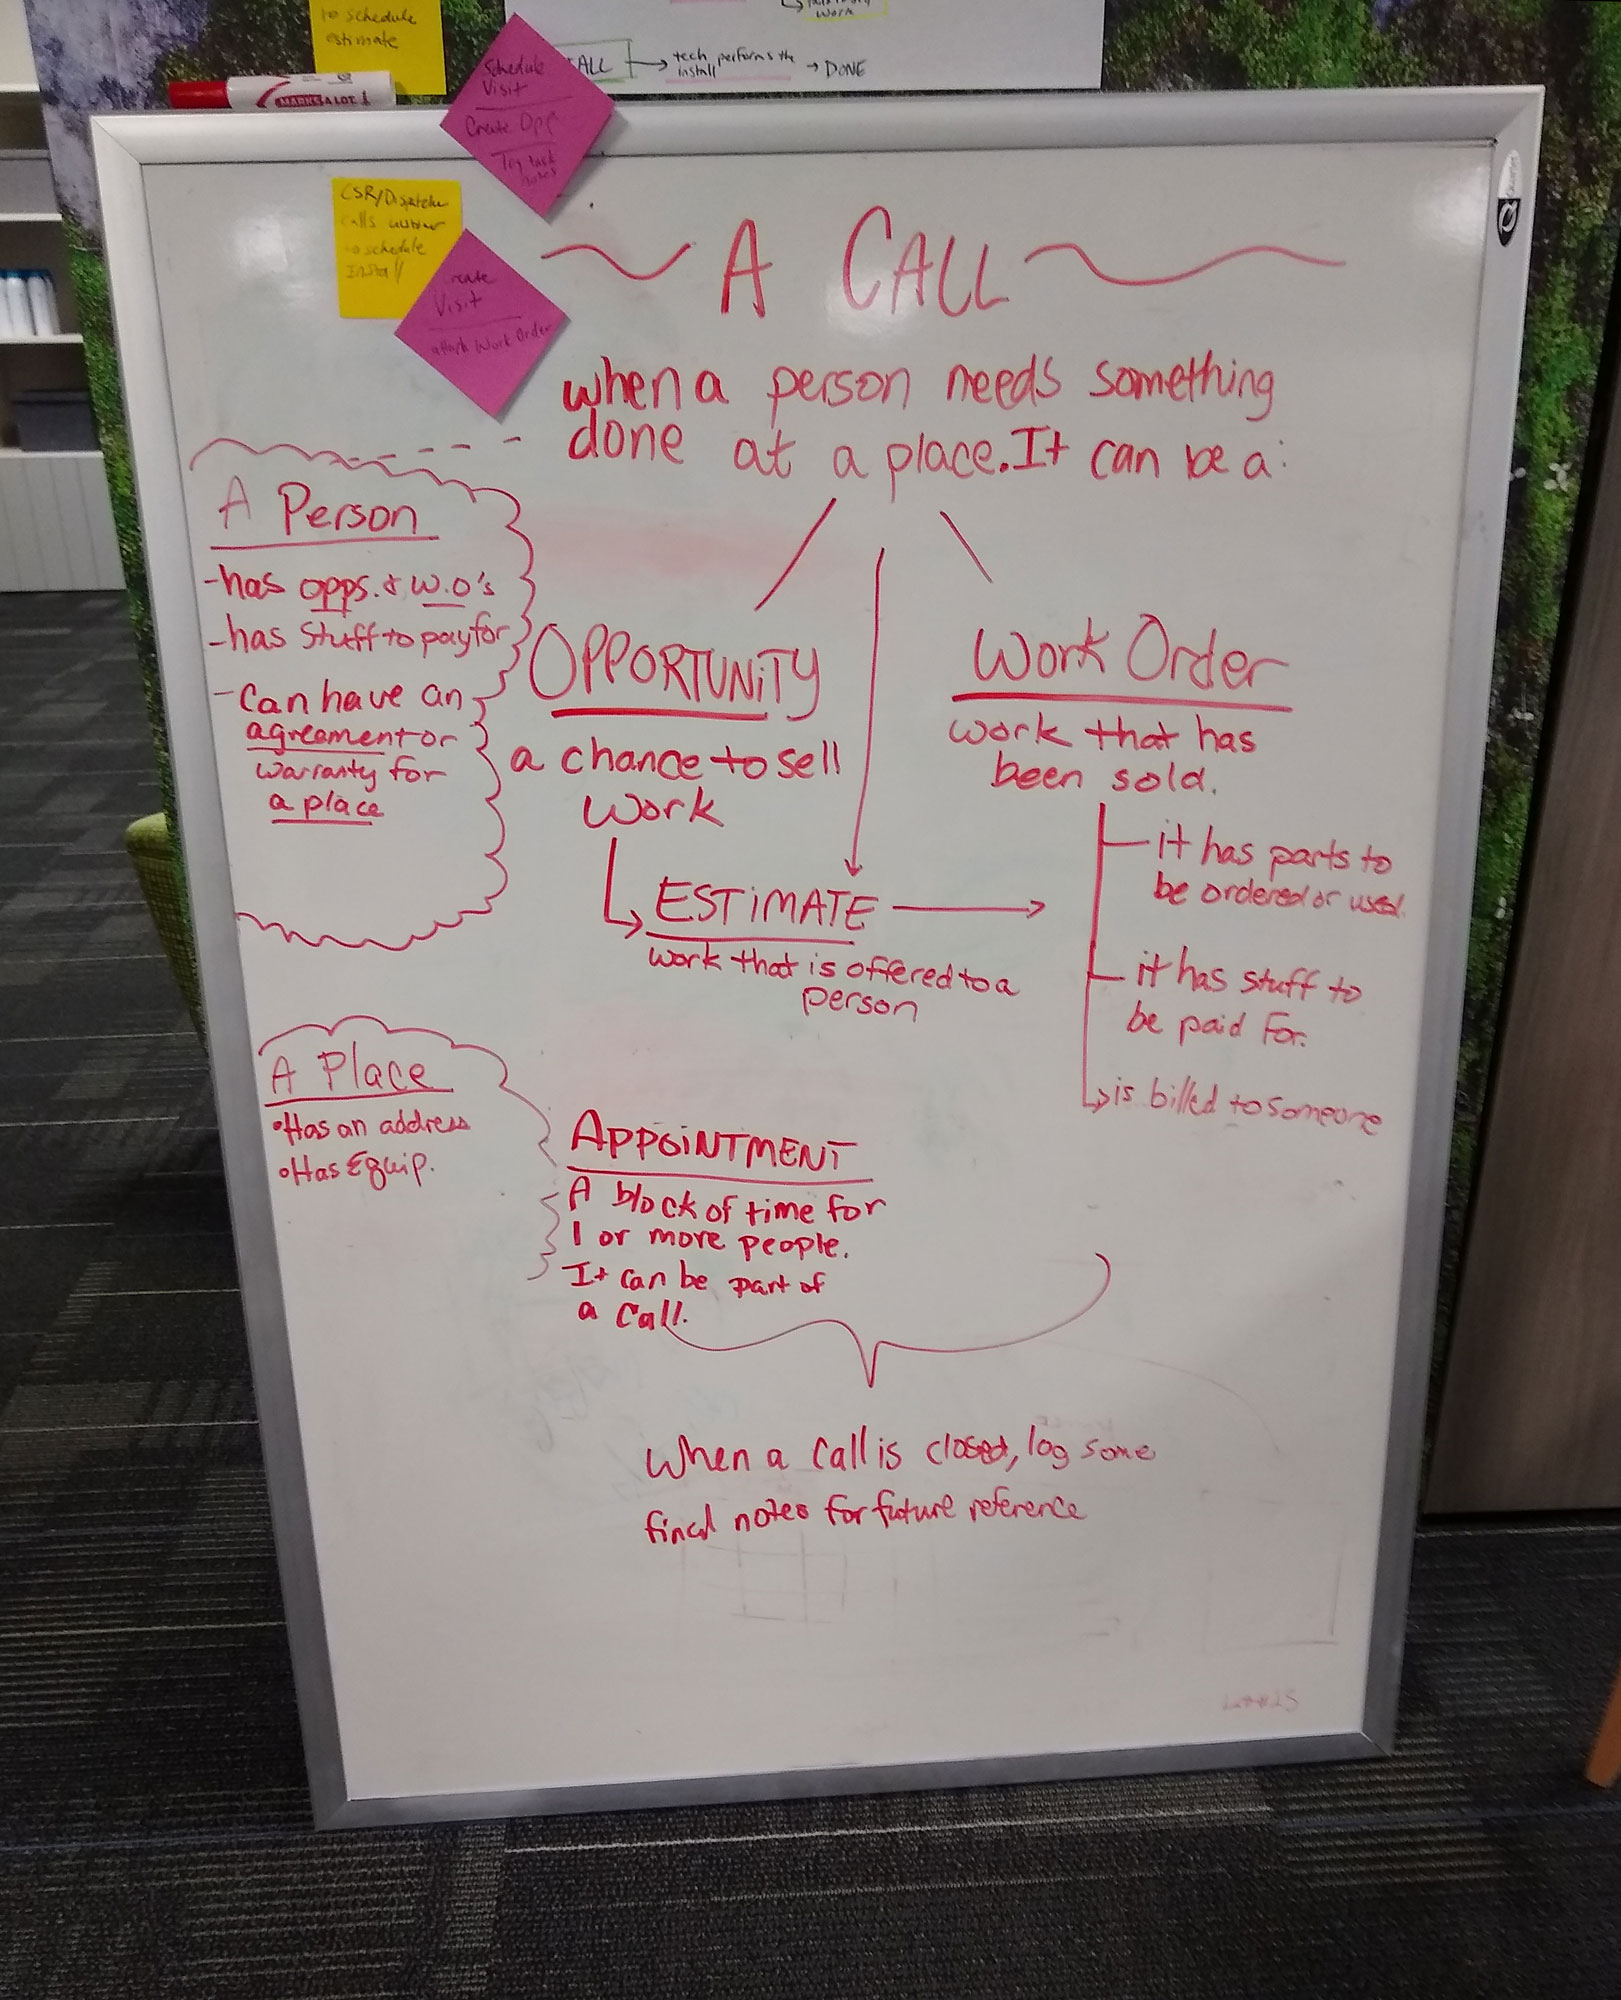 to schedule
estimate
work
ALL
tech performs the
install
DONE
MARKS-A-LOT
Schedule
Visit
Create Opp
Log task
notes
CSR/Dispatch
calls
schedule
Install
Visit
attach Work Order
A CALL
when a person needs something
done at a place. It can be a:
A Person
-has opps. & W.O's
-has stuff to pay for
-Can have an
agreement or
warranty for
a place
OPPORTUNITY
a chance to sell
work
ESTIMATE
work that is offered to a
person
Work Order
work that has
been sold.
it has parts to
be ordered or used.
it has stuff to
be paid for.
is billed to someone
A Place
•Has an address
•Has Equip.
APPOINTMENT
A block of time for
1 or more people.
It can be part of
a Call.
When a Call is closed, log some
final notes for future reference